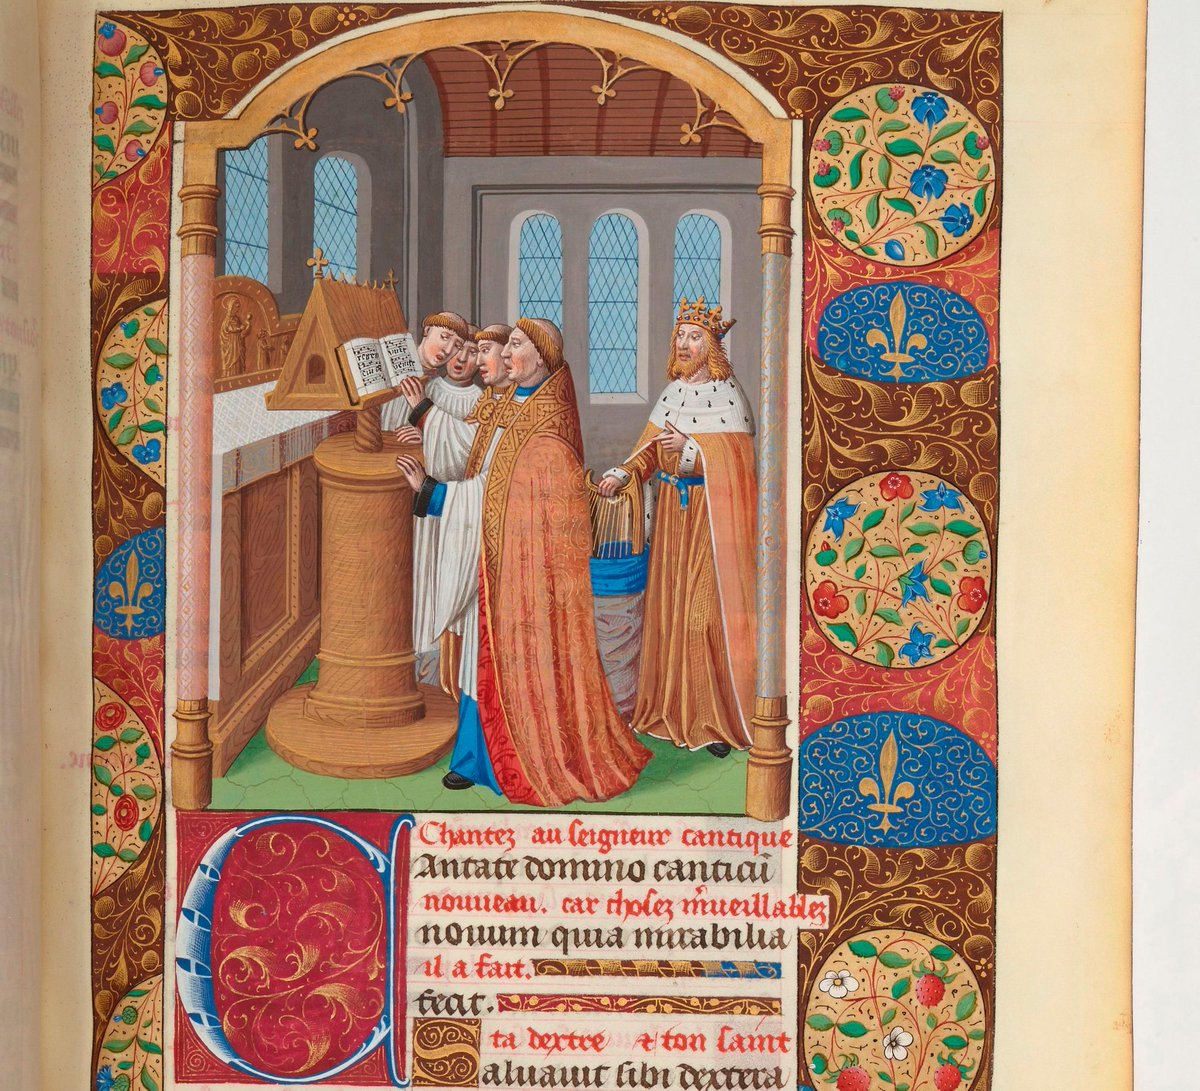 regem
venite
Chantez au seigneur cantique
CAntate domino canticū
nouueau. car choses m̄ueillables
nouum quia mirabilia
il a fait.
fecit.
ta dextre & ton saint
Saluauit sibi dextera